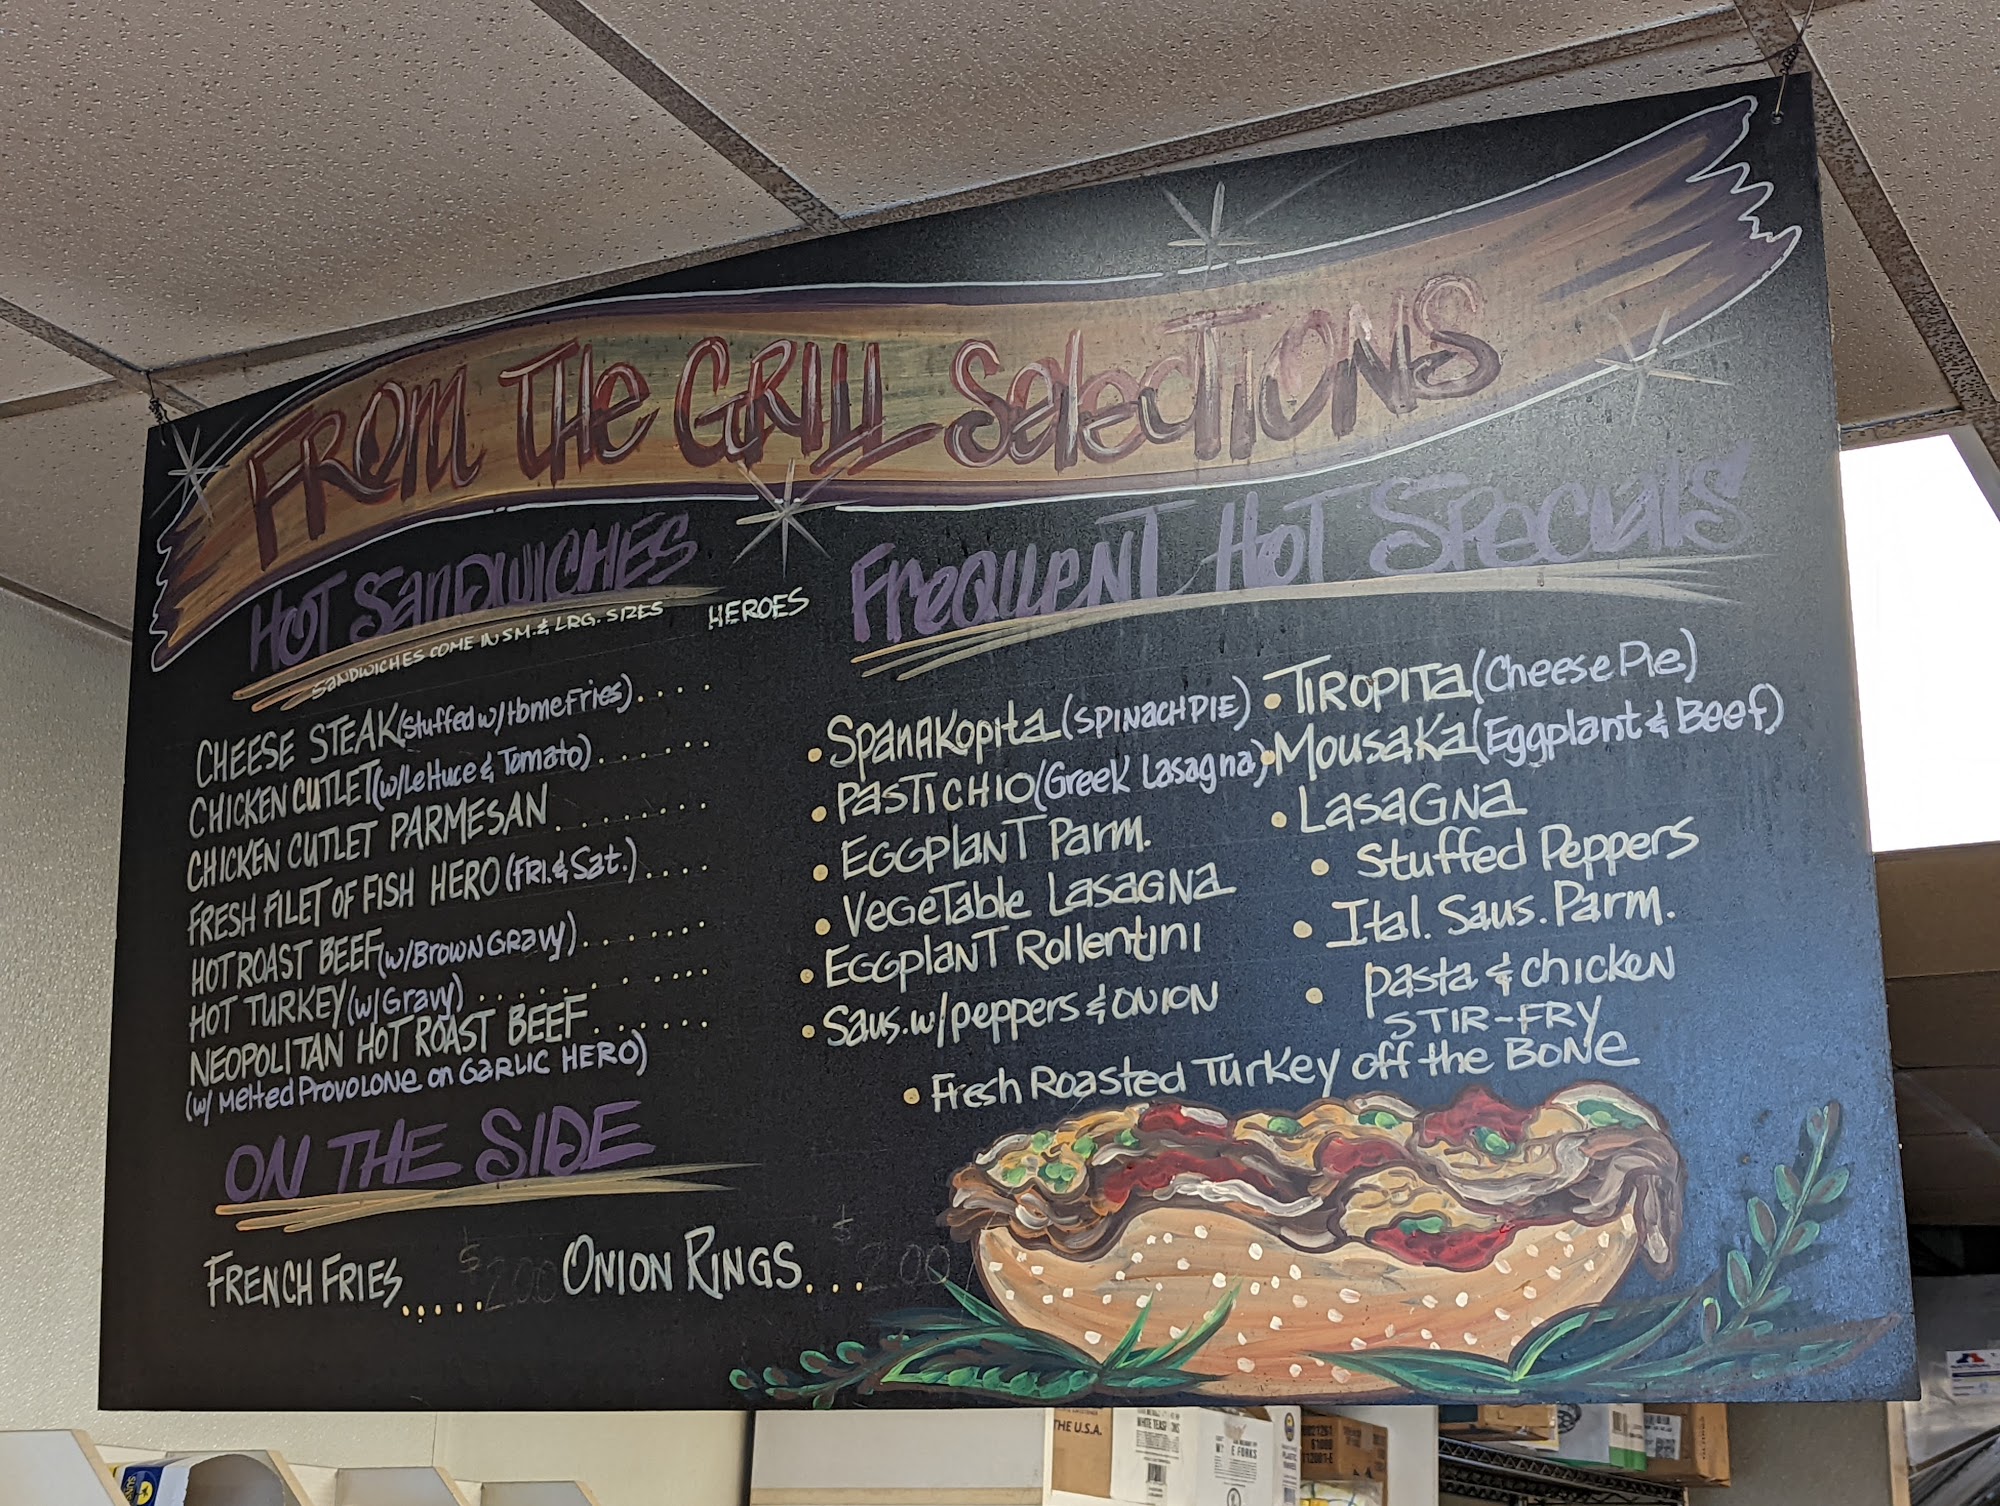 FROM THE GRILL SELECTIONS
HOT SANDWICHES
SANDWICHES COME IN SM. & LRG. SIZES
HEROES
CHEESE STEAK (Stuffed w/ Home Fries) . . . .
CHICKEN CUTLET (w/ Lettuce & Tomato) . . . . . .
CHICKEN CUTLET PARMESAN . . . . . . .
FRESH FILET OF FISH HERO (FRI. & Sat.) . . . .
HOT ROAST BEEF (w/ Brown Gravy) . . . . . . .
HOT TURKEY (w/ Gravy) . . . . . . . . . .
NEOPOLITAN HOT ROAST BEEF . . . . . .
(w/ Melted Provolone on Garlic HERO)
ON THE SIDE
FRENCH FRIES . . . . . $2.00
ONION RINGS . . . $2.00
Frequent Hot Specials
• Spanakopita (SPINACH PIE)
• PASTICHIO (Greek Lasagna)
• EGGPLANT Parm.
• Vegetable Lasagna
• Eggplant Rollentini
• Saus. w/ peppers & ONION
• TIROPITA (Cheese Pie)
• Mousaka (Eggplant & Beef)
• Lasagna
• Stuffed Peppers
• Ital. Saus. Parm.
• pasta & chicken
STIR-FRY
• Fresh Roasted Turkey off the Bone
THE U.S.A.